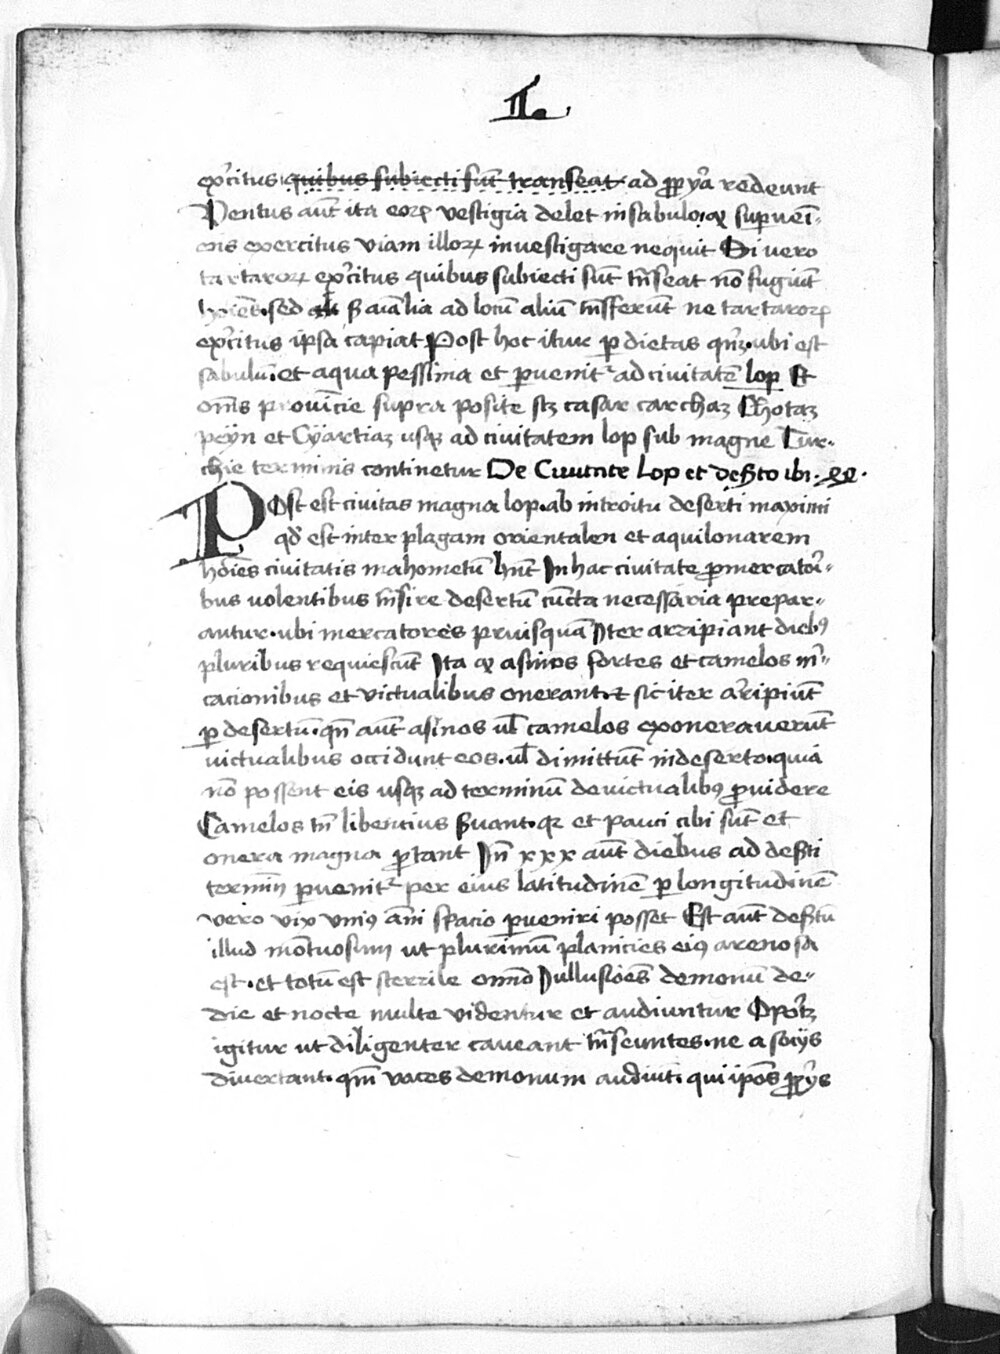 II.
exc̄itus quibus subiecti sūt transeat ad ꝓp̄ya redeunt
Ventus aūt ita eoꝝ vestigia delet in sabulo. qꝫ supuēi-
ens exercitus viam illoꝝ investigare nequit Si vero
tartaroꝝ exc̄itus quibus subiecti sūt t̄nseat nō fugiūt
hoīes. sed aīalia ad locū aliū t̄nsferūt ne tartaroꝝ
exc̄itus ipsa capiat Post hoc itur ꝑ dietas qn̄qꝫ. ubi est
sabulū. et aqua pessima et ꝑuenit᷑ ad civitatē lop Et
om̄s provīcie supra posite sꝫ casar carchaꝫ Chotaꝫ
peyn et Cyartiaꝫ usqꝫ ad civitatem lop sub magne Tur-
chie terminis continetur De Civitate Lop et desꝰto ibi. xx.
Post est civitas magna lop. ab introitu deserti maximi
qd̄ est inter plagam orientalen et aquilonarem
hoīes civitatis mahometū hn̄t In hac civitate ꝑ mercatori-
bus volentibus t̄nsire desertū cūcta necessaria prepar-
antur. ubi mercatores priusquā Iter arripiant diebꝰ
pluribus requiescūt Ita qꝫ asinos fortes et camelos m̄-
cacionibus et victualibus onerant. et sic iter arripiūt
ꝑ desertū. qn̄ aūt asinos ul̄ camelos exoneraverūt
victualibus occidunt eos. ul̄ dimittūt in deserto. quia
nō possent eis usqꝫ ad terminū de victualibꝰ ꝓuidere
Camelos tn̄ libencius ẜuant. qꝫ et pauci cibi sūt et
onera magna ꝑtant In xxx aūt diebus ad desꝰti
terminū ꝑuenit᷑ per eius latitudinē ꝑ longitudinē
vero vix vniꝰ anni spacio ꝑueniri posset Est aūt desꝰtū
illud mōtuosum ut plurimū planicies eiꝰ arenosa
est. et totū est sterile om̄o Illusiōes demonū de-
die et nocte multe videntur et audiuntur Oportꝫ
igitur ut diligenter caveant t̄nseuntes. ne a socijs
divertant. qm̄ voces demonum audiūt. qui ip̄os ꝓp̄ijs